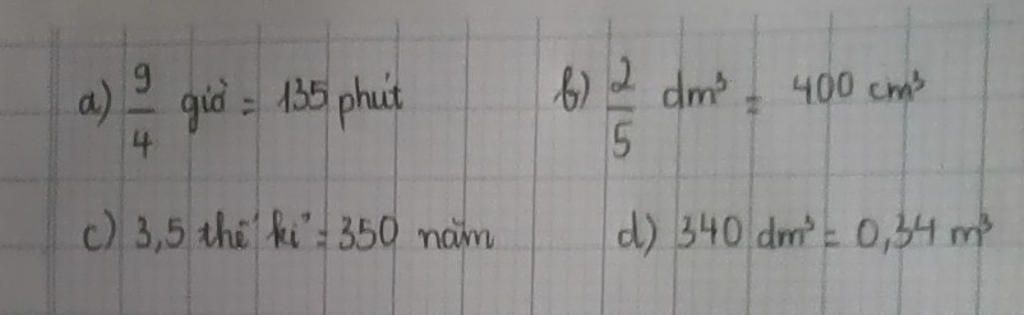 a) 9/4 giờ = 135 phút b) 2/5 dm³ = 400 cm³
c) 3,5 thế kỉ = 350 năm d) 340 dm³ = 0,34 m³